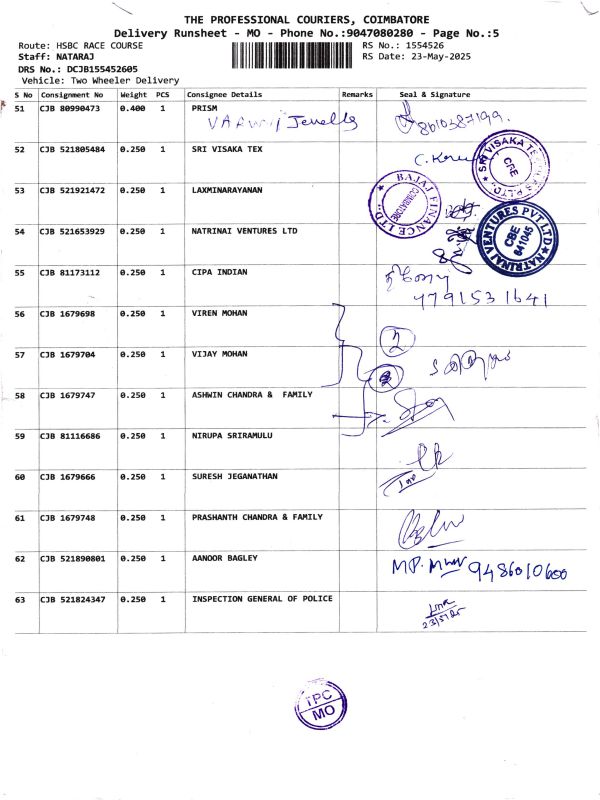 THE PROFESSIONAL COURIERS, COIMBATORE
Delivery Runsheet - MO - Phone No.:9047080280 - Page No.:5
Route: HSBC RACE COURSE
RS No.: 1554526
Staff: NATARAJ
RS Date: 23-May-2025
DRS No.: DCJB155452605
Vehicle: Two Wheeler Delivery
S No Consignment No Weight PCS Consignee Details Remarks Seal & Signature
51 CJB 80990473 0.400 1 PRISM
8610387199.
52 CJB 521805484 0.250 1 SRI VISAKA TEX
SRI VISAKA TEX P.LTD.
CBE
53 CJB 521921472 0.250 1 LAXMINARAYANAN
BAJAJ FINANCE LTD.
COIMBATORE
54 CJB 521653929 0.250 1 NATRINAI VENTURES LTD
NATRINAI VENTURES PVT LTD
CBE
641045
55 CJB 81173112 0.250 1 CIPA INDIAN
7791531641
56 CJB 1679698 0.250 1 VIREN MOHAN
57 CJB 1679704 0.250 1 VIJAY MOHAN
58 CJB 1679747 0.250 1 ASHWIN CHANDRA & FAMILY
59 CJB 81116686 0.250 1 NIRUPA SRIRAMULU
60 CJB 1679666 0.250 1 SURESH JEGANATHAN
61 CJB 1679748 0.250 1 PRASHANTH CHANDRA & FAMILY
62 CJB 521890801 0.250 1 AANOOR BAGLEY
9486010600
63 CJB 521824347 0.250 1 INSPECTION GENERAL OF POLICE
23/5/25
TPC
MO